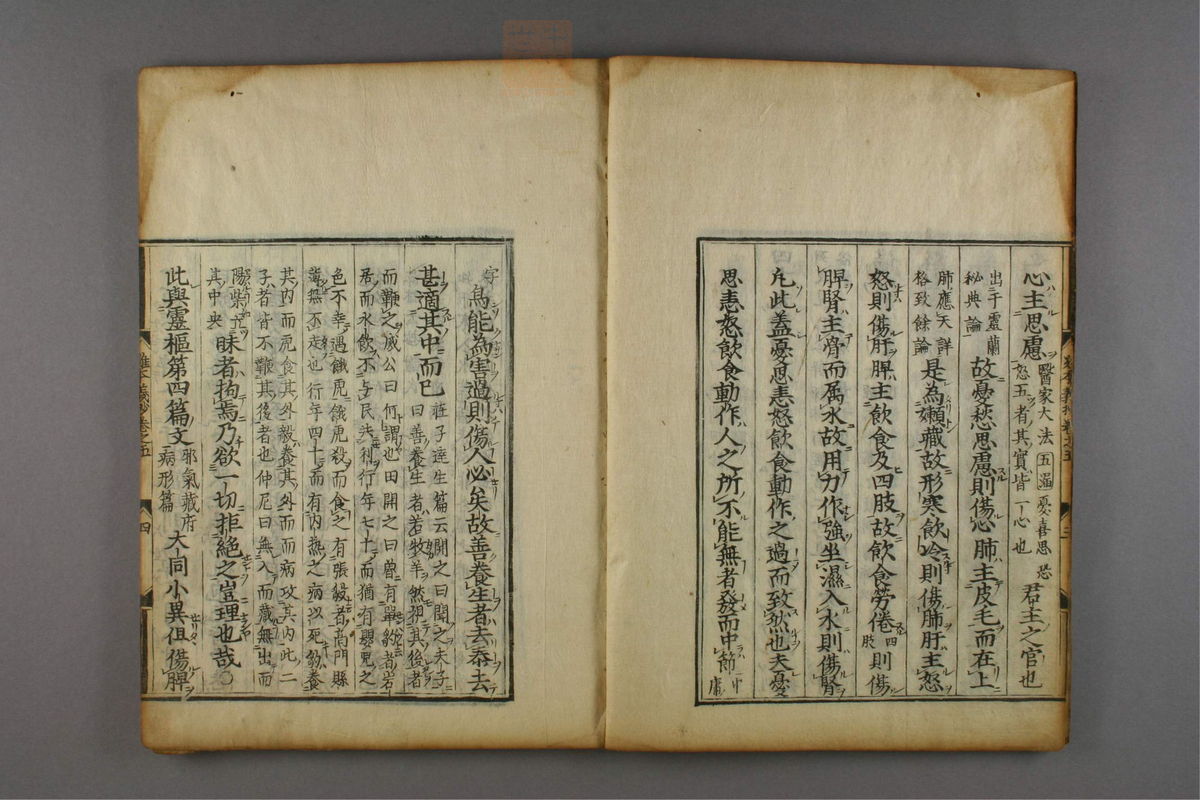 心主思慮 醫家大法五過憂喜思恐怒五者其實皆一心也 君主之官也
出于靈蘭秘典論 故憂愁思慮則傷心肺主皮毛而在上
肺應天詳格致餘論 是為嬾藏故形寒飲冷則傷肺肝主怒
怒則傷肝脾主飲食及四肢故飲食勞倦四肢則傷
脾腎主骨而属水故用力作強坐濕入水則傷腎
凡此蓋憂思恚怒飲食動作之過而致然也夫憂
思恚怒飲食動作人之所不能無者發而中節中庸
字 烏能為害過則傷人必矣故善養生者去泰去
甚適其中而已 莊子達生篇云開之曰聞之夫子曰善養生者若牧羊然視其後者
而鞭之威公曰何謂也田開之曰魯有單豹者岩
居而水飲不与民共利行年七十而猶有嬰兒之
色不幸遇餓虎餓虎殺而食之有張毅者高門縣
薄無不走也行年四十而有内熱之病以死豹養
其内而虎食其外毅養其外而病攻其内此二
子者皆不鞭其後者也仲尼曰無入而藏無出而
陽柴立其中央 昧者拘焉乃欲一切拒絶之豈理也哉○
此與靈樞第四篇文 邪氣藏府病形篇 大同小異但傷脾
難經義抄卷之五 四
三